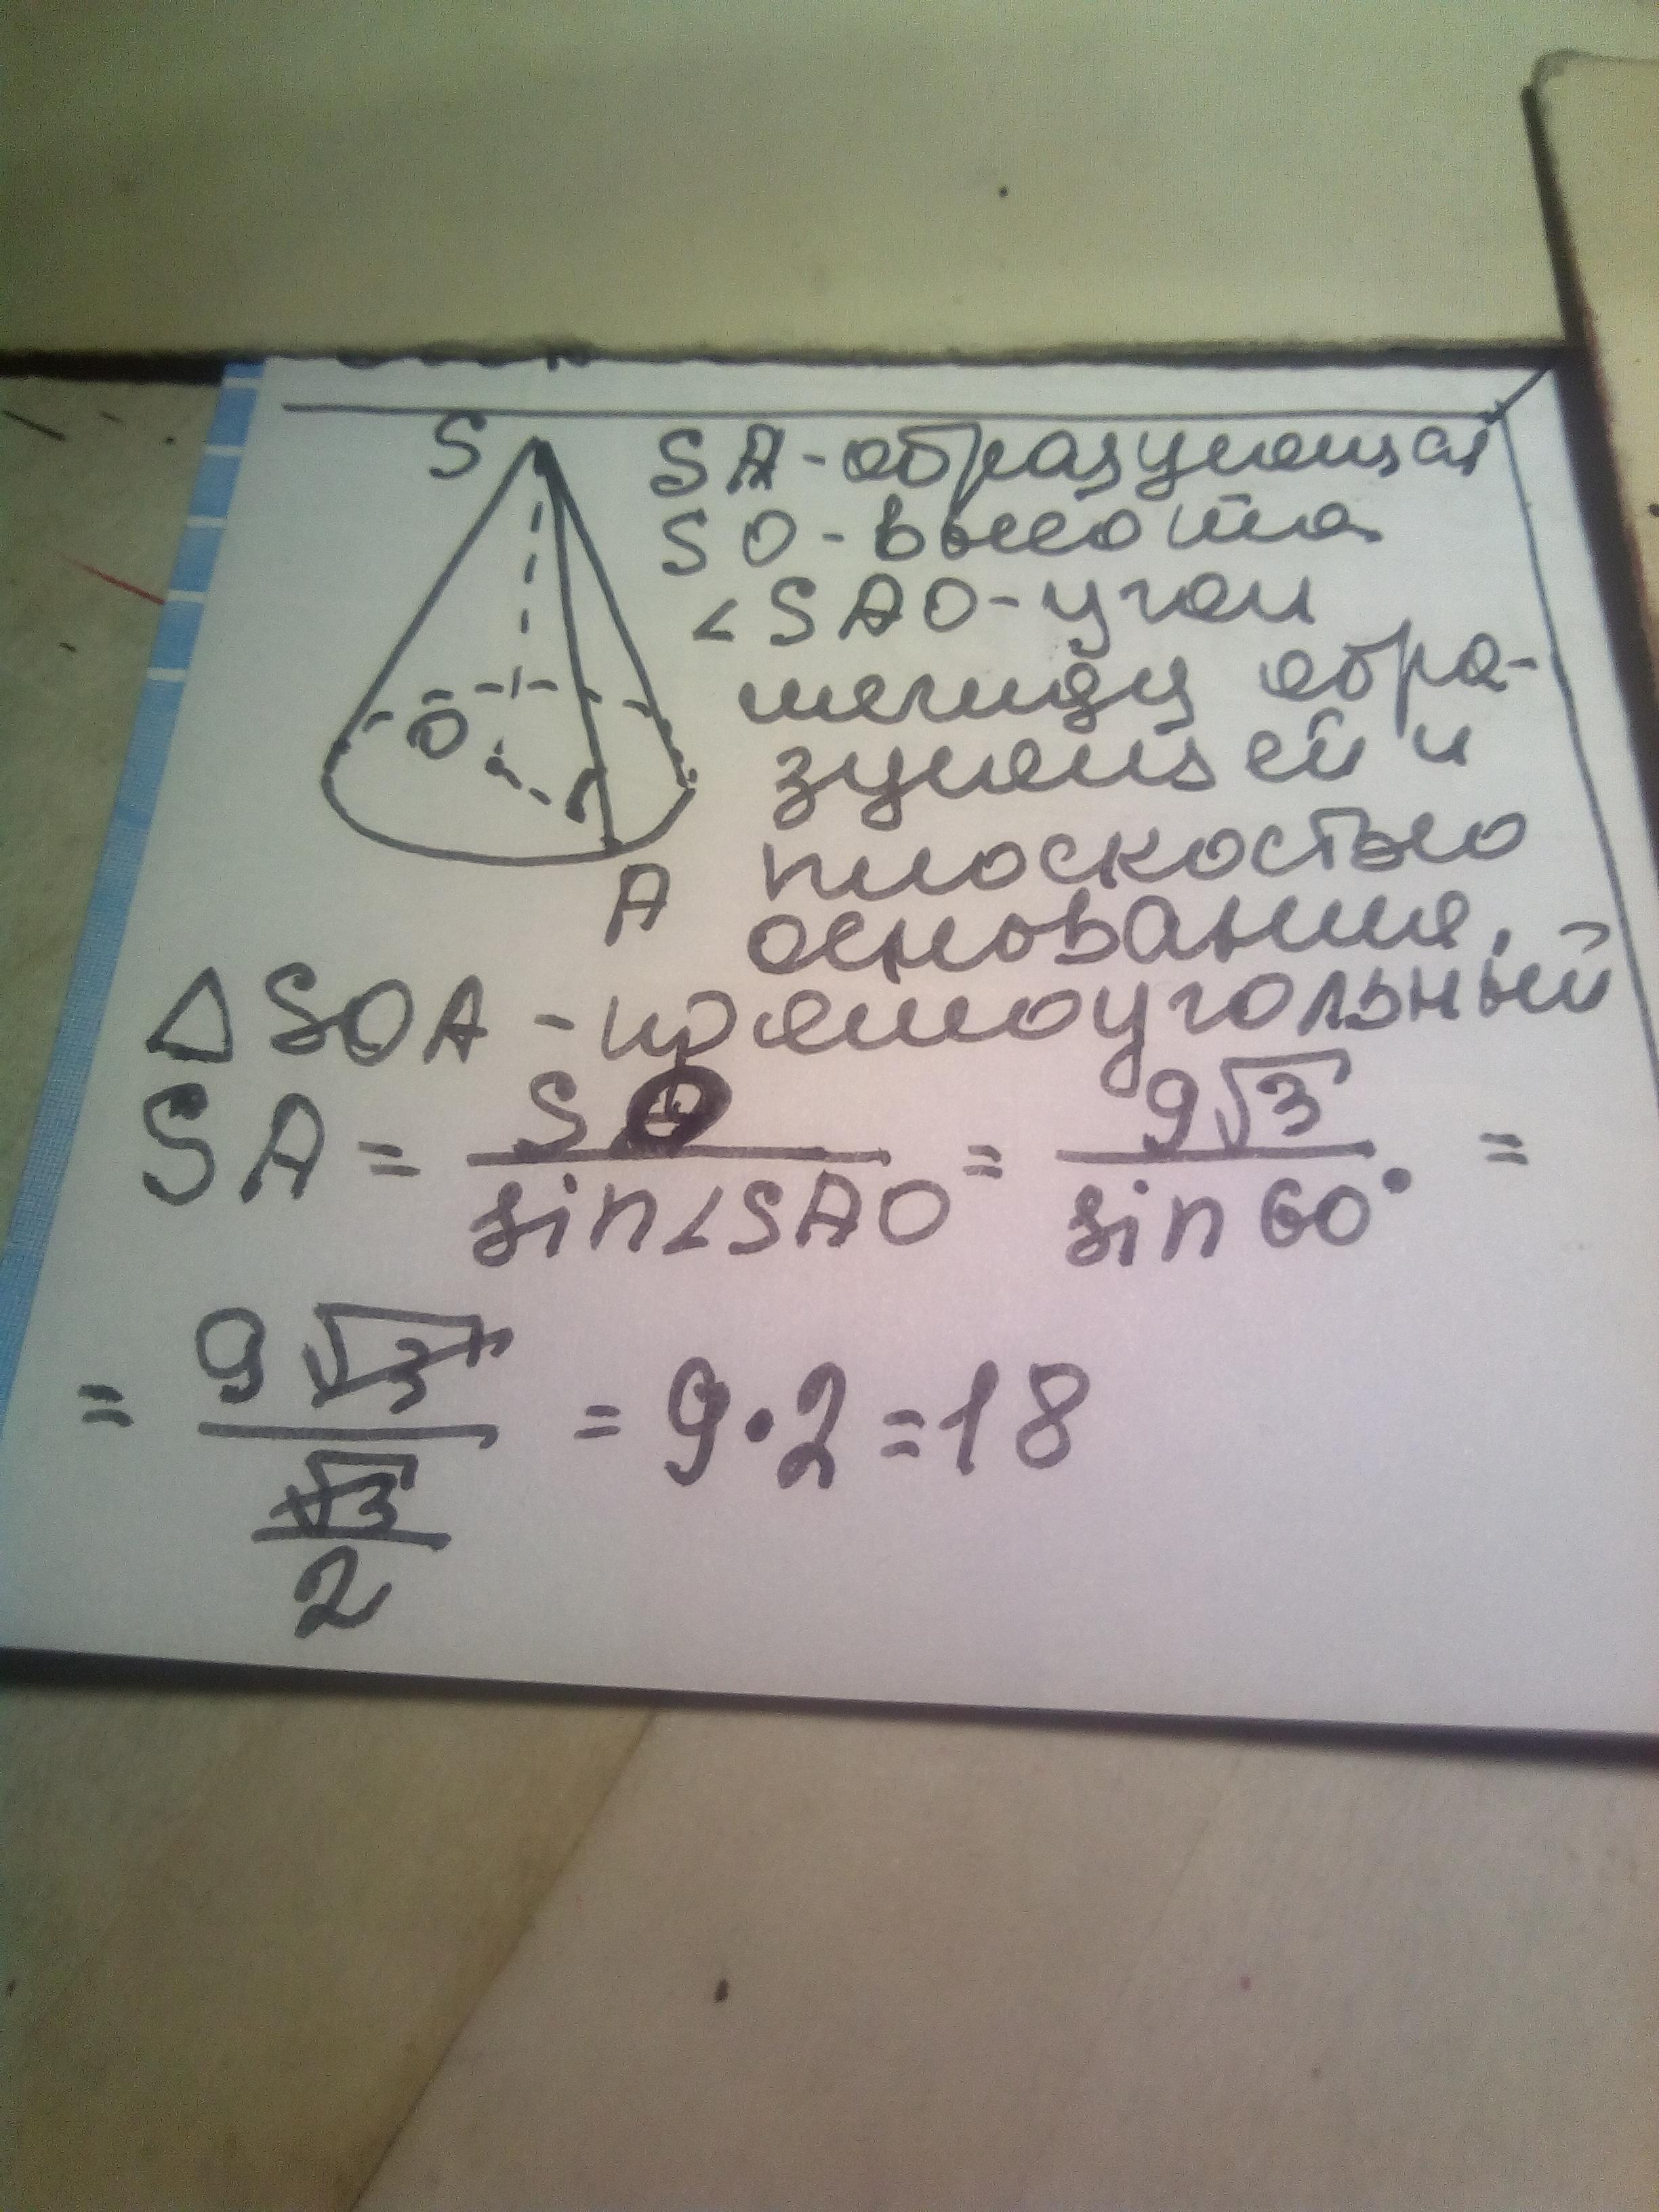 S
SA-образующая
SO-высота
∠SAO-угол
между обра-
зующей и
O
плоскостью
A
основания.
△SOA-прямоугольный
SA = SO / sin∠SAO = 9√3 / sin 60° =
= 9√3 / (√3 / 2) = 9·2=18